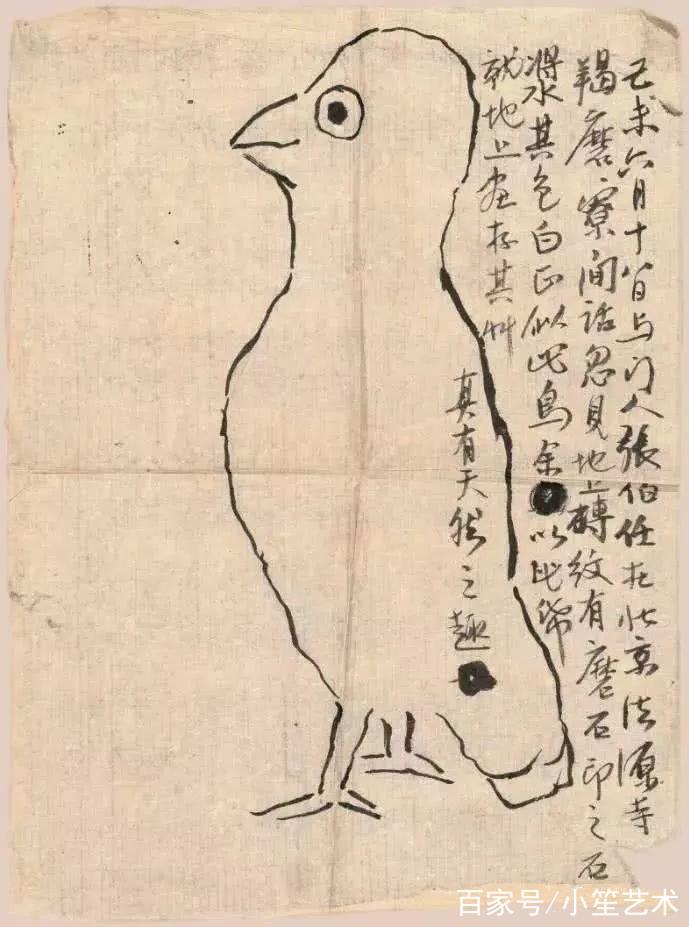 己未六月十八日与门人張伯任在北京法源寺
羯磨寮间話忽見地上磚紋有磨石印之石
漿水其色白正似此鳥余以此帋
就地上画存其艸
真有天然之趣
百家号/小笙艺术